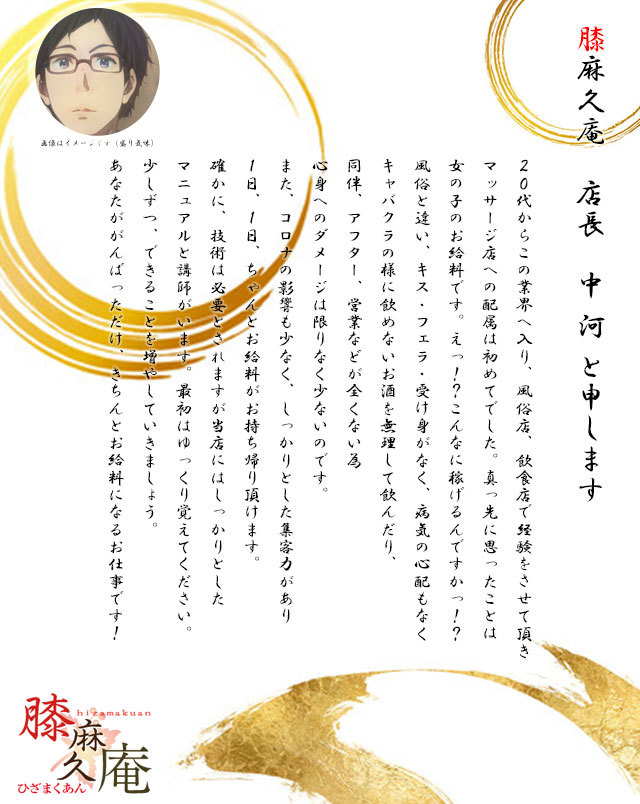 膝麻久庵 店長 中河と申します
20代からこの業界へ入り、風俗店、飲食店で経験をさせて頂き
マッサージ店への配属は初めてでした。真っ先に思ったことは
女の子のお給料です。えっ!?こんなに稼げるんですかっ!?
風俗と違い、キス・フェラ・受け身がなく、病気の心配もなく
キャバクラの様に飲めないお酒を無理して飲んだり、
同伴、アフター、営業などが全くない為
心身へのダメージは限りなく少ないのです。
また、コロナの影響も少なく、しっかりとした集客力があり
1日、1日、ちゃんとお給料がお持ち帰り頂けます。
確かに、技術は必要とされますが当店にはしっかりとした
マニュアルと講師がいます。最初はゆっくり覚えてください。
少しずつ、できることを増やしていきましょう。
あなたががんばっただけ、きちんとお給料になるお仕事です!
画像はイメージです(盛り気味)
膝麻久庵
hizamakuan
ひざまくあん